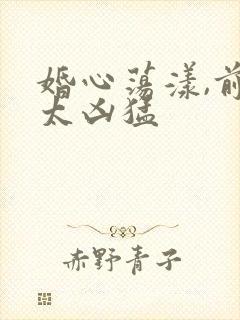 婚心荡漾,前
太凶猛
赤野青子